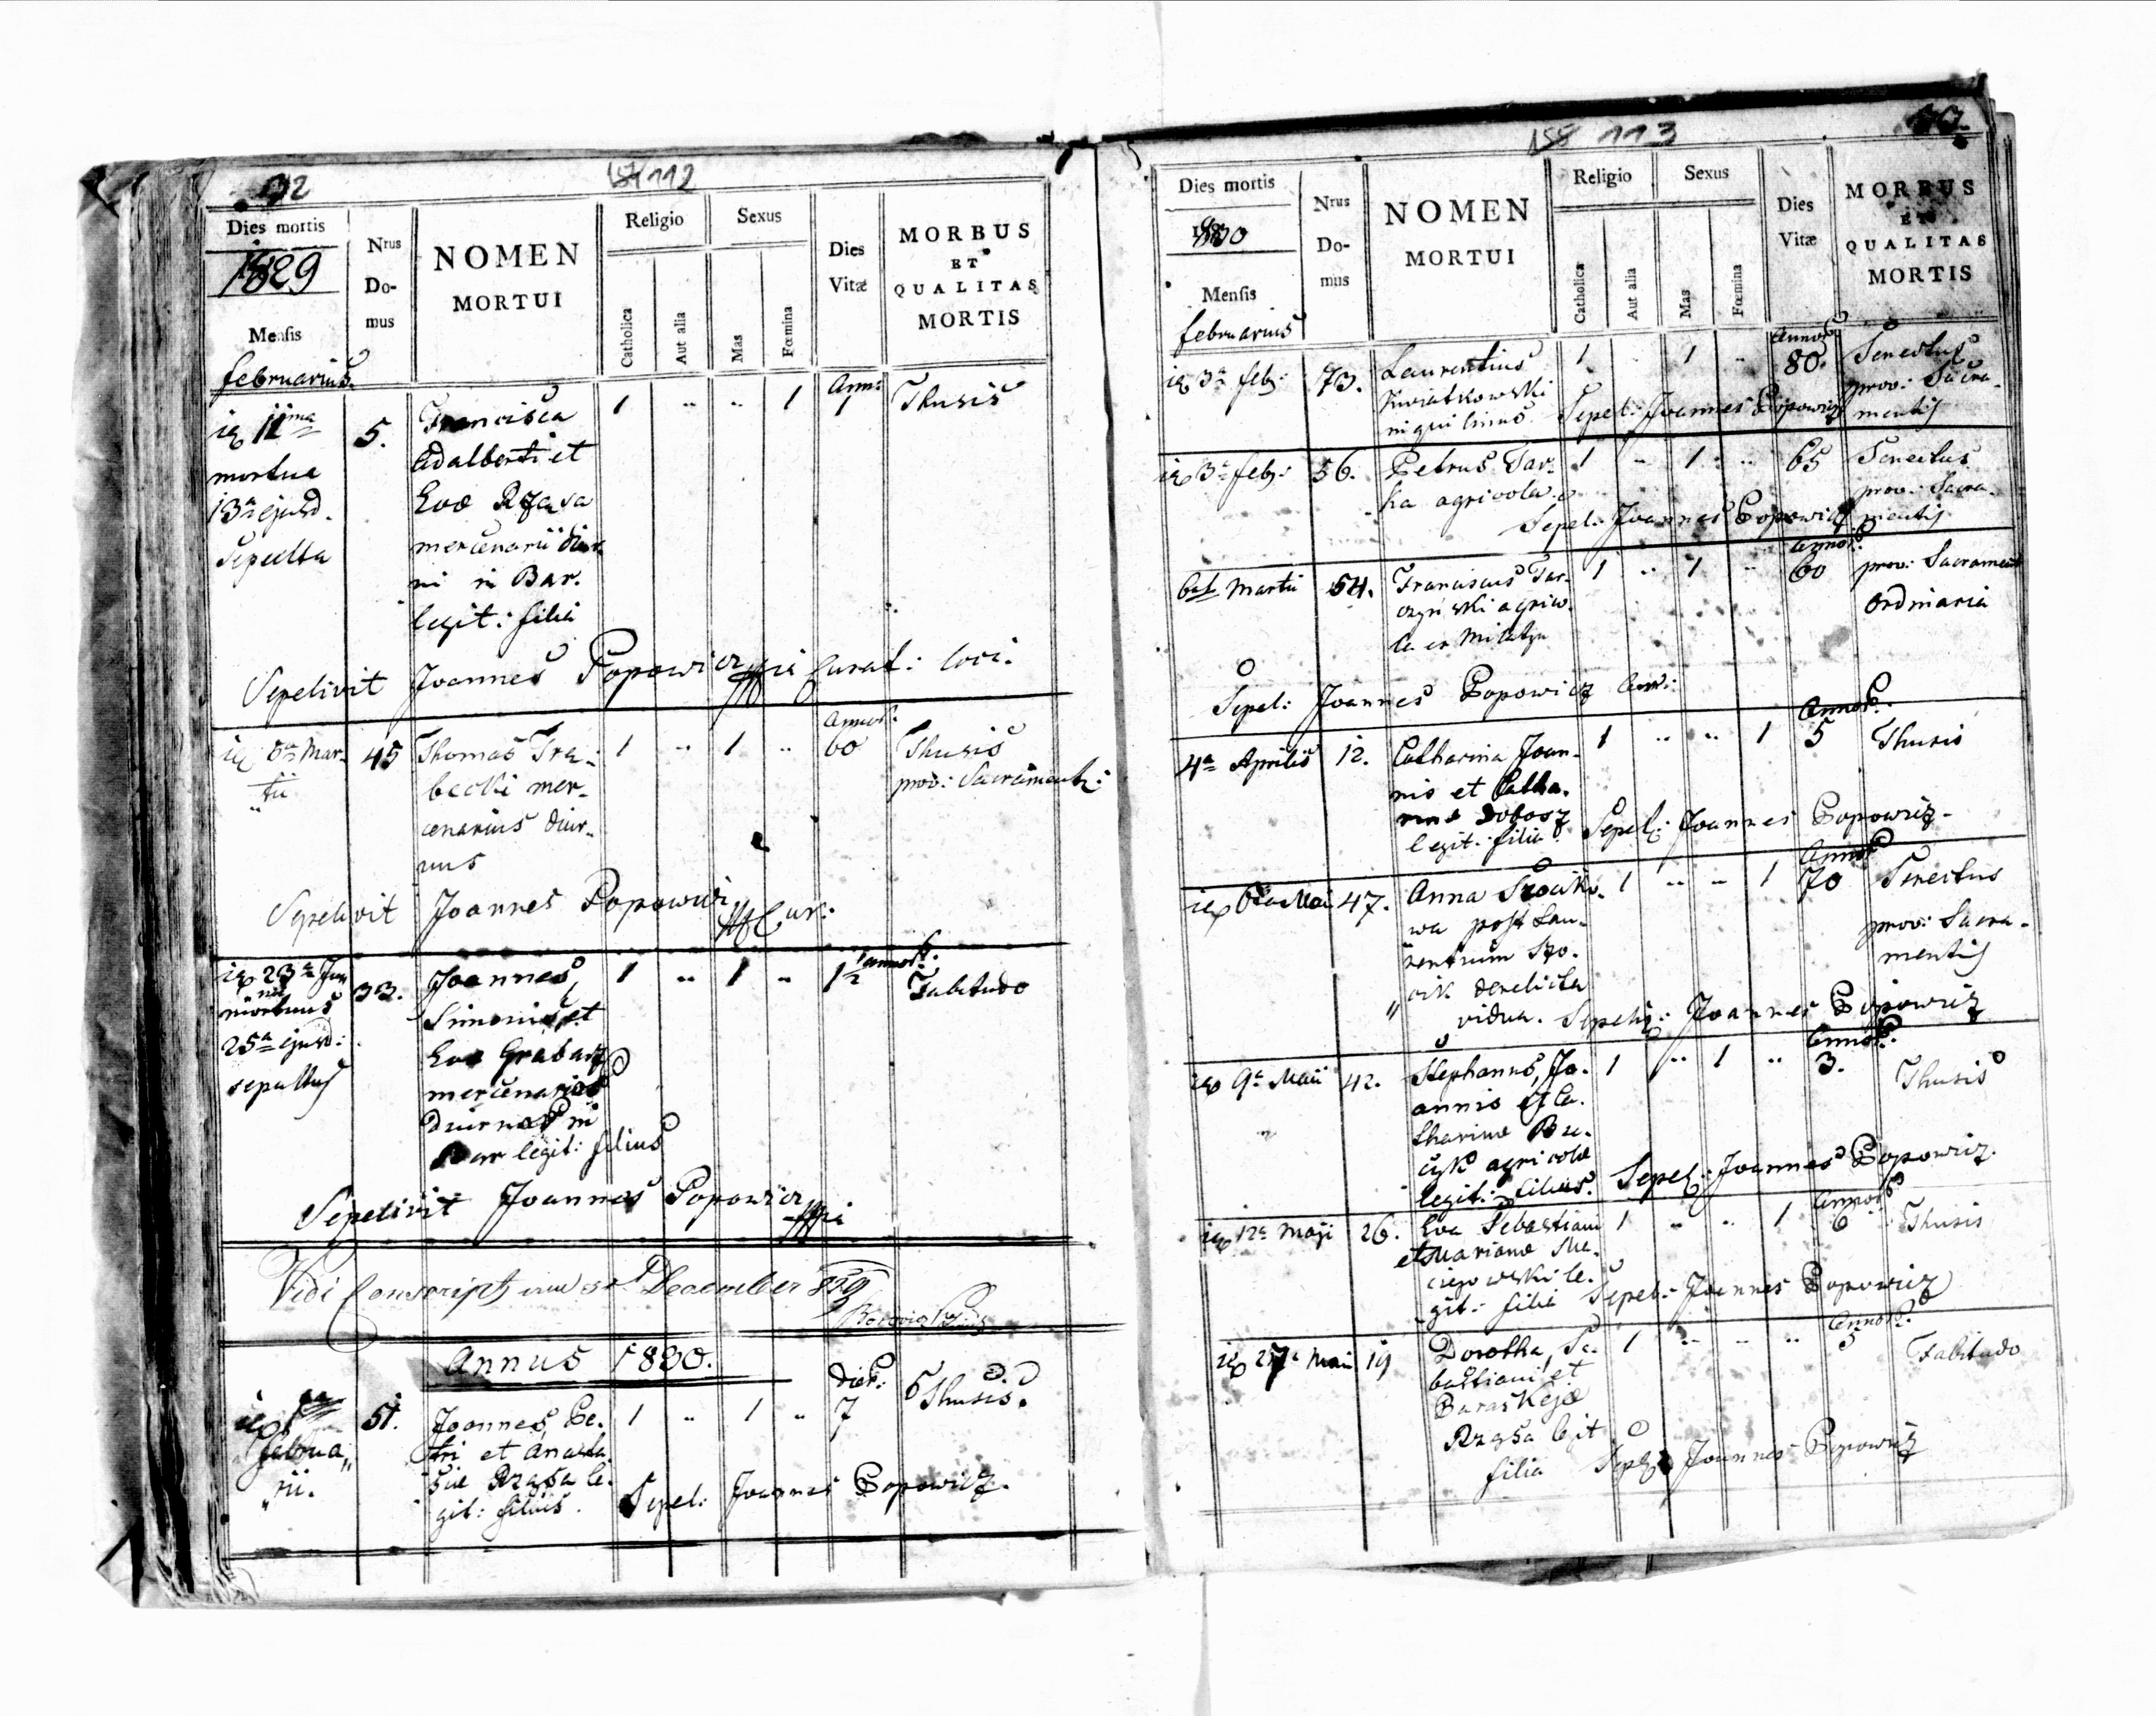 32
112
Dies mortis
1829
Mensis
februarius.
Nrus
Do-
mus
NOMEN
MORTUI
Religio
Catholica
Aut alia
Sexus
Mas
Fœmina
Dies
Vitæ
MORBUS
ET
QUALITAS
MORTIS
11ma
mortua
13a ejusd.
Sepulta
5.
Francisca
Adalberti et
Evæ Rząsa
mercenarii diur
ni in Bar.
legit: filia
1 .. .. 1
Ann:
1
Thusis
Sepelivit Joannes Popowicz mpia Curat: loci.
8a Mar-
tii
45
Thomas Tra-
becki mer-
cenarius diur-
nus
1 .. 1 ..
Annor:
60
Thusis
prov: Sacrament:
Sepelivit Joannes Popowicz Cur:
23a Jun
nii
mortuus
25a ejusd:
sepultus
33.
Joannes,
Simonis, et
Evæ Grabarz
mercenarios
diurnos in
Bar legit: filius
1 .. 1 ..
annor:
1½
Tabitudo
Sepelivit Joannes Popowicz mpia
Vidi Conscript December 829
Annus 1830.
1ma
februa
rii.
51.
Joannes, Pe-
tri et Anasta
siæ Rząsa le-
git: filius.
1 .. 1 ..
Dier:
7
Thusis.
Sepel: Joannes Popowicz.
158 113
Dies mortis
1830
Mensis
februarius
Nrus
Do-
mus
NOMEN
MORTUI
Religio
Catholica
Aut alia
Sexus
Mas
Fœmina
Dies
Vitæ
MORBUS
ET
QUALITAS
MORTIS
3a feb:
73.
Laurentius
Kwiatkowski
inquilinus
1 .. 1 ..
Annor:
80.
Senectus
prov: Sacra-
mentis
Sepel: Joannes Popowicz
3a feb:
56.
Petrus Tar-
ka agricola
1 .. 1 ..
65
Senectus
prov: Sacra-
mentis
Sepel: Joannes Popowicz
6ta Martii
54.
Franciscus Tar-
czyński agrico-
la ex
1 .. 1 ..
Annor:
60
prov: Sacrament
Ordinaria
Sepel: Joannes Popowicz Cur:
4a Aprilis
12.
Catharina Joan-
nis et Catha-
rinæ Dobosz
legit: filia
1 .. .. 1
Annor:
5
Thusis
Sepel: Joannes Popowicz
6ta Maii
47.
Anna Szoik-
wa post Lau-
rentium Szo-
ik derelicta
vidua.
1 .. .. 1
Annor:
70
Senectus
prov: Sacra-
mentis
Sepel: Joannes Popowicz
9a Maii
42.
Stephanus, Jo-
annis et Ca-
tharinæ Bu-
cyk agricolæ
legit: filius.
1 .. 1 ..
Annor:
3.
Thusis
Sepel: Joannes Popowicz.
12a Maji
26.
Eva Sebastiani
et Mariannæ Ma-
ciejowski le-
git: filia
1 .. .. 1
Annor:
6
Thusis
Sepel: Joannes Popowicz
27a Maii
19
Dorothea, Se-
bastiani et
Paraskejæ
Rząsa legit
filia
1 .. .. ..
Annor:
5
Tabitudo
Sepel: Joannes Popowicz